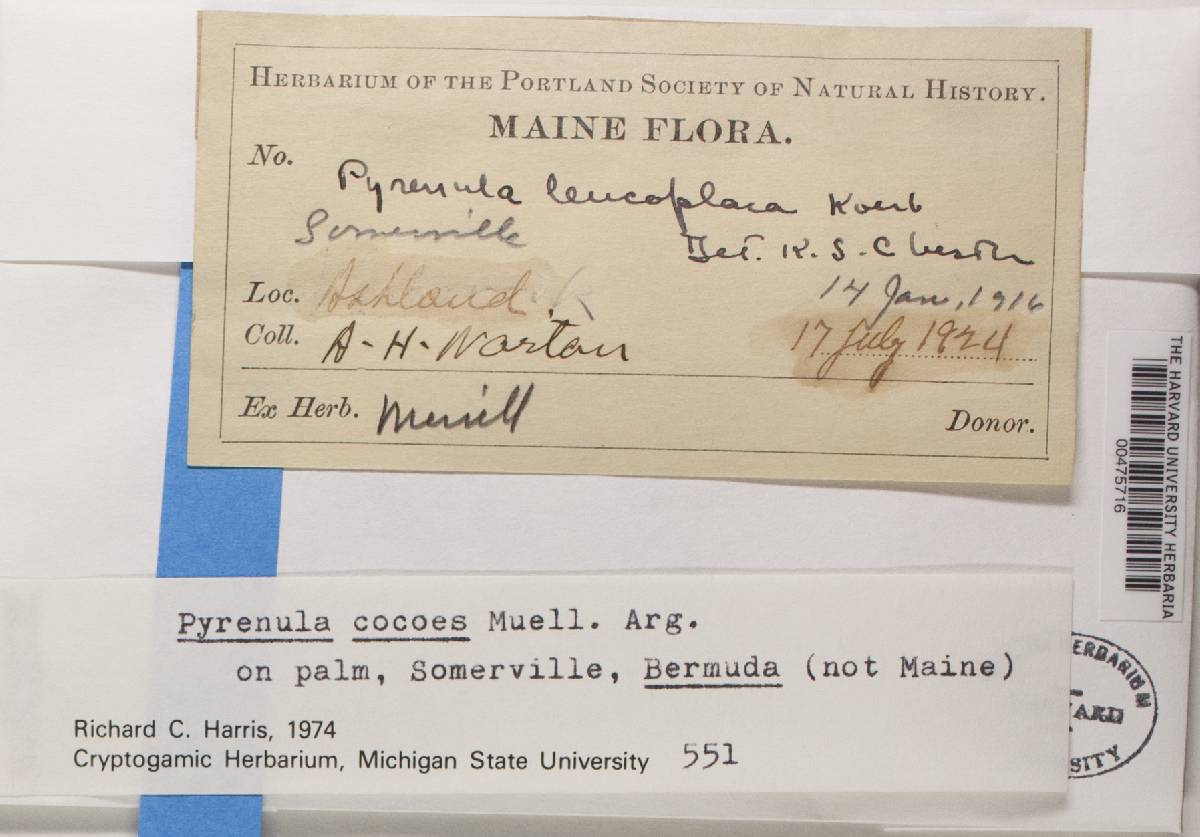 HERBARIUM OF THE PORTLAND SOCIETY OF NATURAL HISTORY.
MAINE FLORA.
No.
Pyrenula leucoplaca Koerb
Somerville
Det. K. S. Chester
Loc. Ashland.
14 Jan, 1916
Coll. A. H. Norton
17 July 1924
Ex Herb. Merrill
Donor.
THE HARVARD UNIVERSITY HERBARIA
00475716
Pyrenula cocoes Muell. Arg.
on palm, Somerville, Bermuda (not Maine)
Richard C. Harris, 1974
Cryptogamic Herbarium, Michigan State University 551
ERBARIUM
ARD
SITY